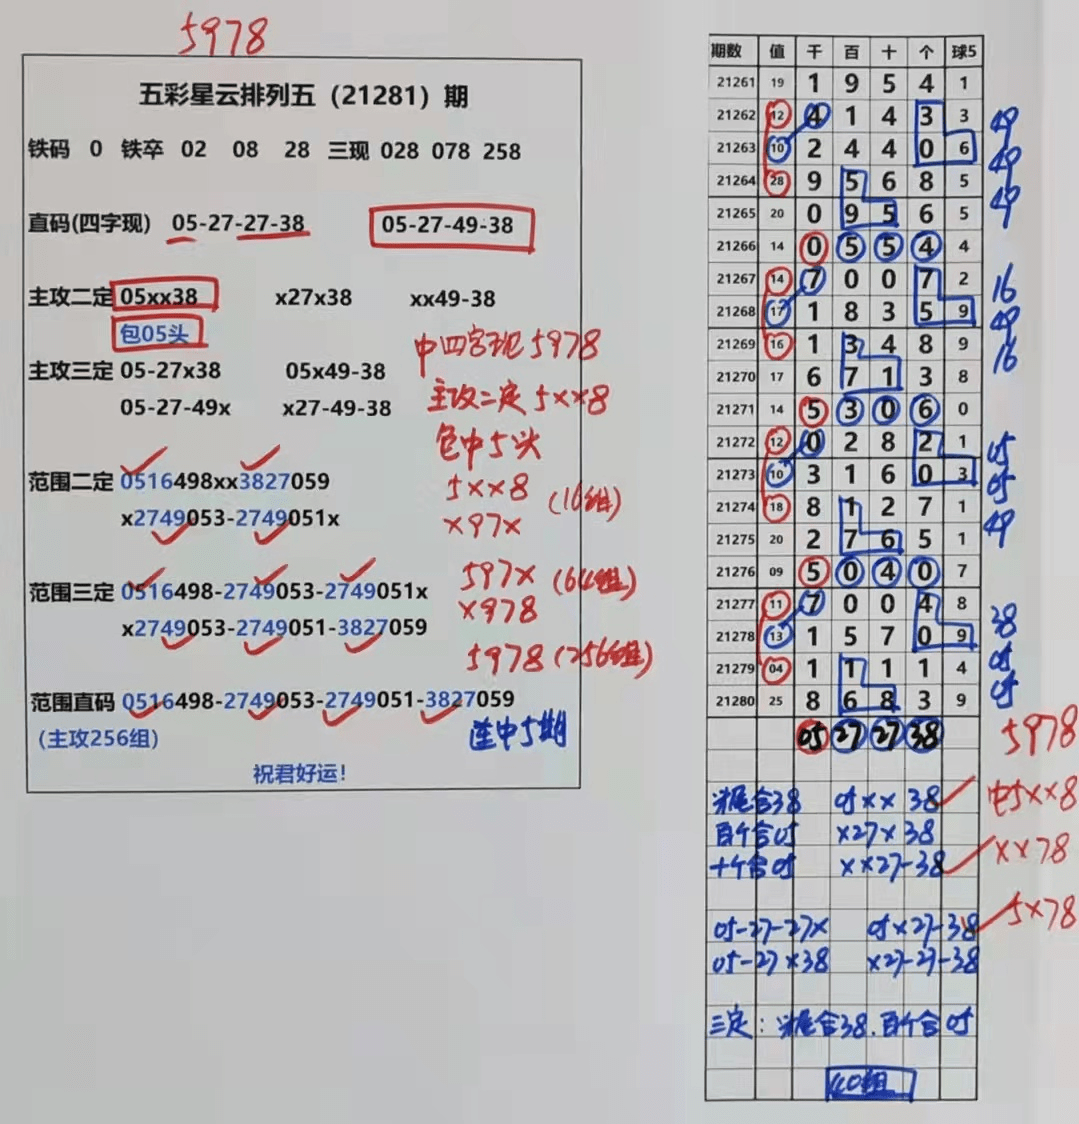 5978
五彩星云排列五（21281）期
铁码 0 铁卒 02 08 28 三现 028 078 258
直码(四字现) 05-27-27-38 05-27-49-38
主攻二定 05xx38 x27x38 xx49-38
包05头
中四字现5978
主攻三定 05-27x38 05x49-38
主攻二定5xx8
05-27-49x x27-49-38
包中5头
范围二定 0516498xx3827059
5xx8 (16组)
x2749053-2749051x
x97x
范围三定 0516498-2749053-2749051x
597x (64组)
x2749053-2749051-3827059
x978
5978 (256组)
范围直码 0516498-2749053-2749051-3827059
(主攻256组)
连中5期
祝君好运!
期数 值 千 百 十 个 球5
21261 19 1 9 5 4 1
21262 12 4 1 4 3 3 49
21263 10 2 4 4 0 6 49
21264 28 9 5 6 8 5 49
21265 20 0 9 5 6 5
21266 14 0 5 5 4 4
21267 14 7 0 0 7 2 16
21268 17 1 8 3 5 9 49
21269 16 1 3 4 8 9 16
21270 17 6 7 1 3 8
21271 14 5 3 0 6 0
21272 12 0 2 8 2 1 05
21273 10 3 1 6 0 3 05
21274 18 8 1 2 7 1 49
21275 20 2 7 6 5 1
21276 09 5 0 4 0 7
21277 11 7 0 0 4 8 38
21278 13 1 5 7 0 9 05
21279 04 1 1 1 1 4 05
21280 25 8 6 8 3 9
05 27 27 38 5978
尾合38 05xx 38 中5xx8
百个合05 x27x 38
十个合05 xx27-38 xx78
05-27-27x 05x27-38 5x78
05-27x38 x27-27-38
三定：尾合38.百个合05
40组